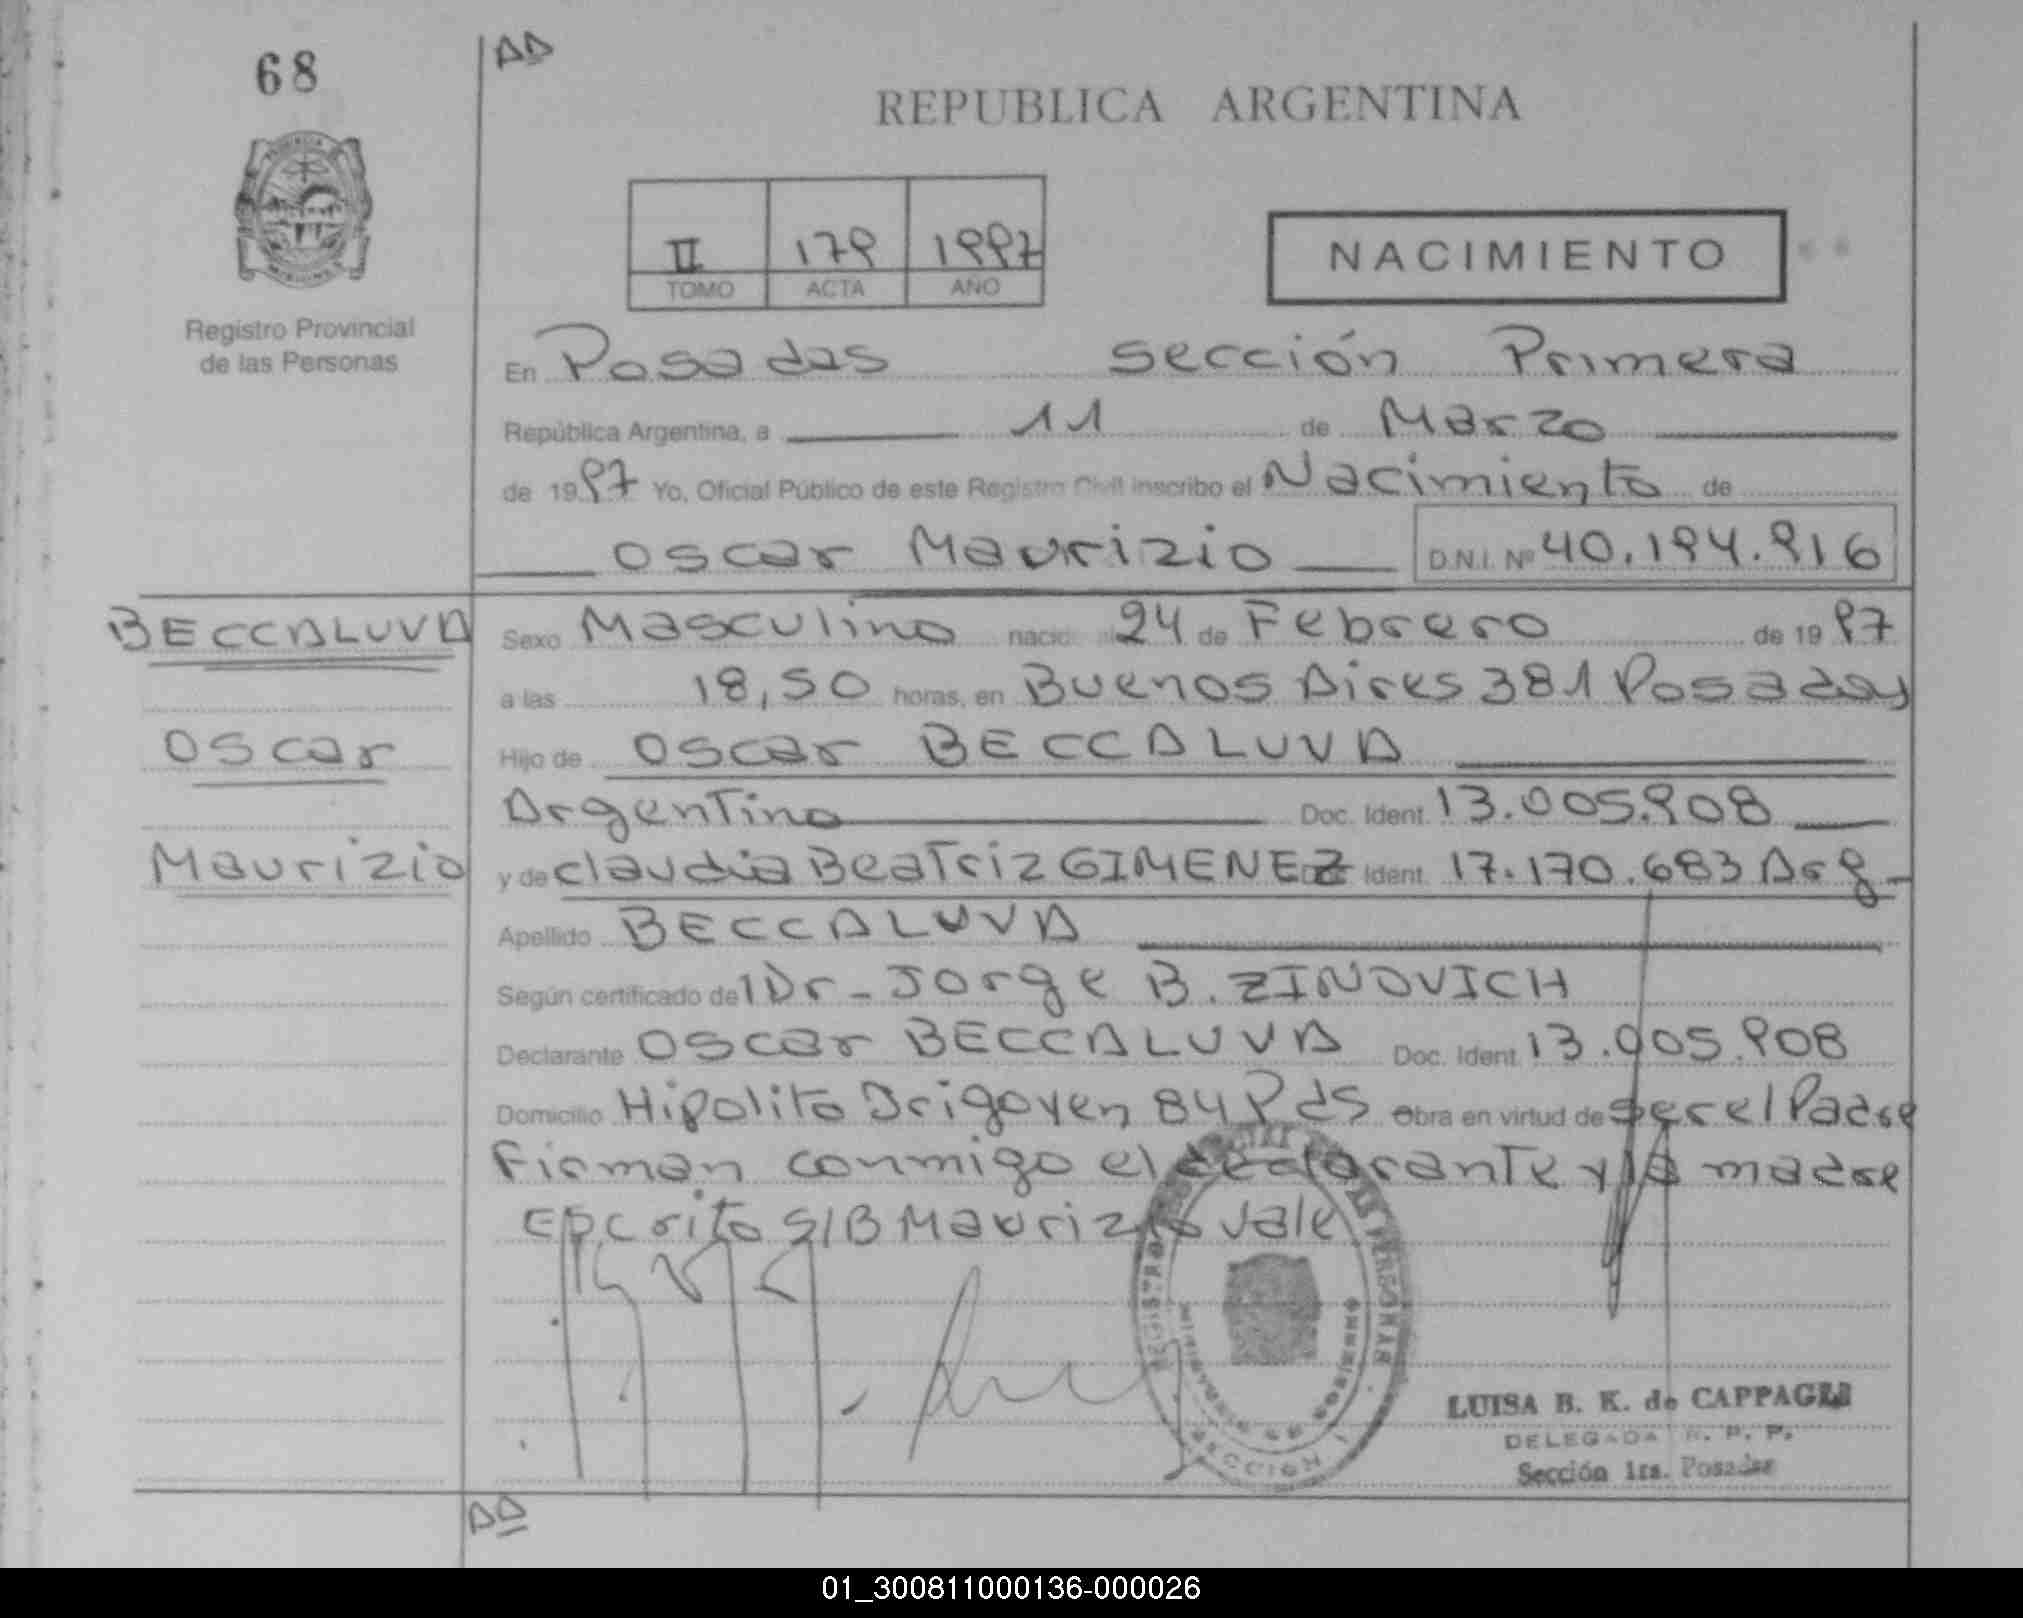 68
DD
REPUBLICA ARGENTINA
II 179 1997
TOMO ACTA AÑO
NACIMIENTO
Registro Provincial
de las Personas
En Posadas sección Primera
República Argentina, a 11 de Marzo
de 1997 Yo, Oficial Público de este Registro Civil inscribo el Nacimiento de
Oscar Maurizio D.N.I. Nº 40.194.916
BECCALUVA
Oscar
Maurizio
Sexo Masculino nacido el 24 de Febrero de 1997
a las 18,50 horas, en Buenos Aires 381 Posadas
Hijo de Oscar BECCALUVA
Argentino Doc. Ident. 13.005.908
y de Claudia Beatriz GIMENEZ Ident. 17.170.683 Arg
Apellido BECCALUVA
Según certificado del Dr. Jorge B. ZINOVICH
Declarante Oscar BECCALUVA Doc. Ident. 13.005.908
Domicilio Hipolito Irigoyen 84 Pds Obra en virtud de ser el Padre
Firman conmigo el declarante y la madre
Escrito S/B Maurizio Vale
REGISTRO DE LAS PERSONAS
SECCION 1
LUISA B. K. de CAPPAGLI
DELEGADA R. P. P.
Sección 1ra. Posadas
DD
01_300811000136-000026